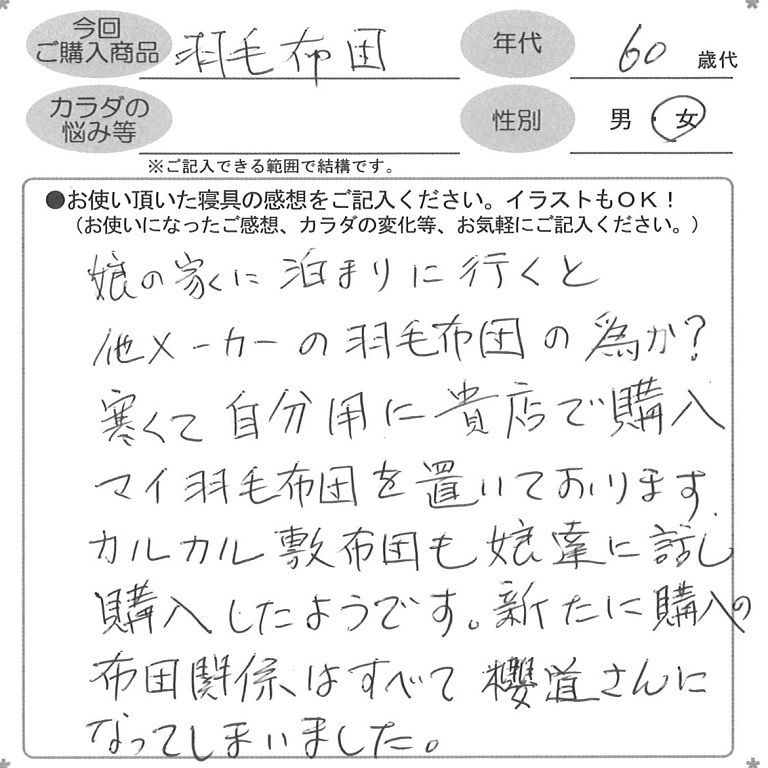 今回
ご購入商品
羽毛布団
年代
60
歳代
カラダの
悩み等
性別
男・女
※ご記入できる範囲で結構です。
●お使い頂いた寝具の感想をご記入ください。イラストもOK!
(お使いになったご感想、カラダの変化等、お気軽にご記入ください。)
娘の家に泊まりに行くと
他メーカーの羽毛布団の為か?
寒くて自分用に貴店で購入
マイ羽毛布団を置いております。
カルカル敷布団も娘達に話し
購入したようです。新たに購入の
布団関係はすべて櫻道さんに
なってしまいました。